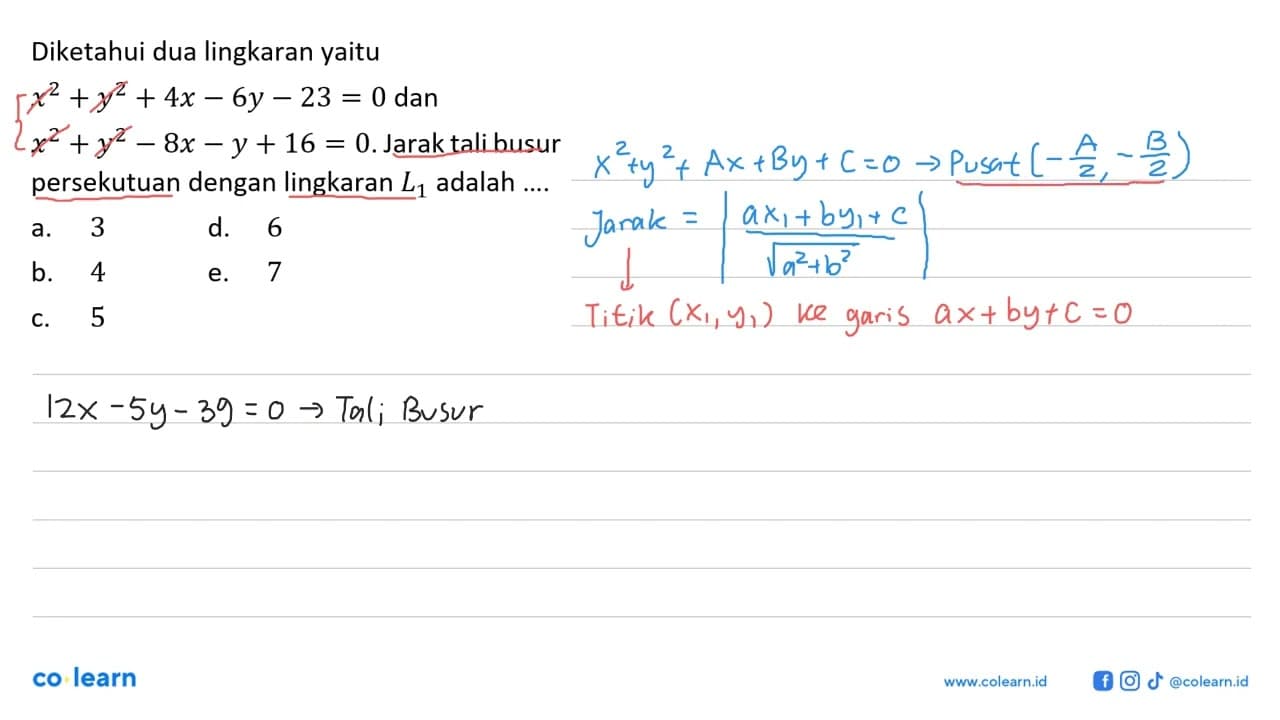 Diketahui dua lingkaran yaitu
x² + y² + 4x − 6y − 23 = 0 dan
x² + y² − 8x − y + 16 = 0. Jarak tali busur
persekutuan dengan lingkaran L₁ adalah ....
a. 3 d. 6
b. 4 e. 7
c. 5
x² + y² + Ax + By + C = 0 → Pusat (−A/2, −B/2)
Jarak = |ax₁ + by₁ + c / √a² + b²|
↓
Titik (x₁, y₁) ke garis ax + by + c = 0
12x − 5y − 39 = 0 → Tali Busur
co learn
www.colearn.id @colearn.id